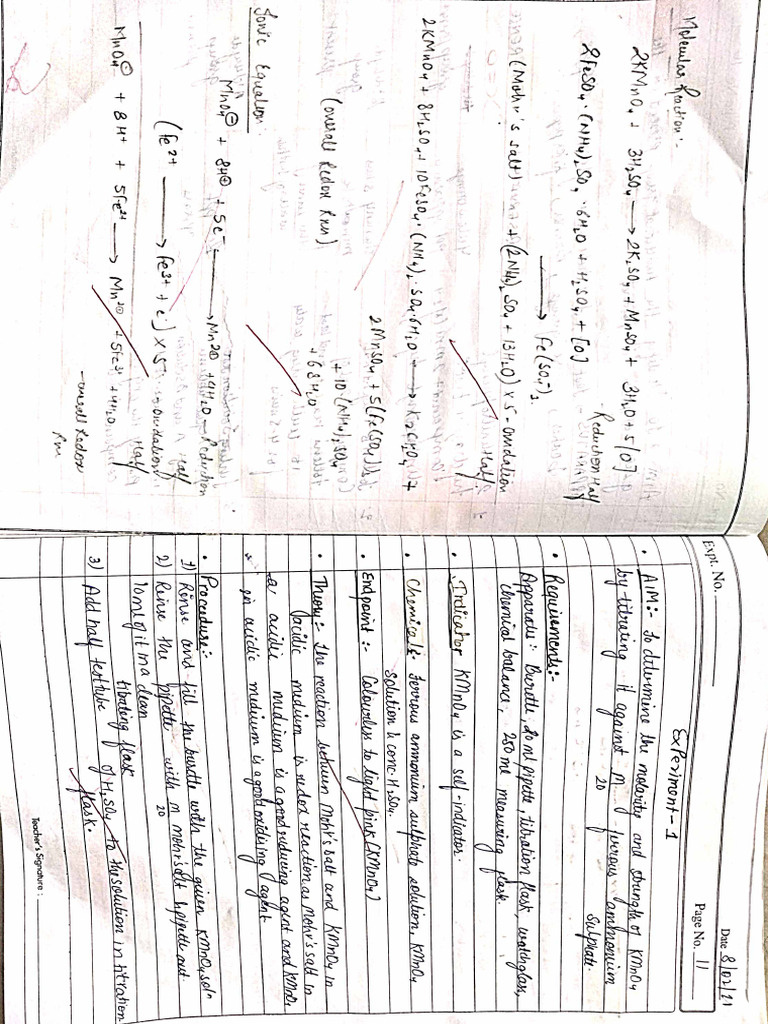 Molecular Reaction:
2KMnO4 + 3H2SO4 → 2K2SO4 + MnSO4 + 3H2O + 5[O]
Reduction Half
2FeSO4·(NH4)2SO4·6H2O + H2SO4 + [O]
→ Fe(SO4)3
(Mohr's salt) + (2NH4)2SO4 + 13H2O) × 5 - Oxidation
Half
2KMnO4 + 8H2SO4 + 10FeSO4·(NH4)2SO4·6H2O →
2MnSO4 + 5(Fe(SO4)3)
+ 10(NH4)2SO4
+ 68H2O
(overall Redox Rxn)
Ionic Equation:
MnO4⊖ + 8H⊕ + 5e- → Mn2⊕ + 4H2O - Reduction
Half
(Fe2+ → Fe3+ + e-) × 5 - (Oxidation)
Half
MnO4⊖ + 8H+ + 5Fe2+ → Mn2⊕ + 5Fe3+ + 4H2O
- overall Redox
Rxn
Date 8/02/21
Expt. No.
Page No. 11
Experiment-1
• AIM:- To determine the molarity and strength of KMnO4
by titrating it against M/20 ferrous ammonium
sulphate.
• Requirements:-
Apparatus:- Burette, 20 ml pipette, titration flask, watchglass,
chemical balance, 250 ml measuring flask.
• Indicator KMnO4 is a self-indicator.
• Chemicals:- Ferrous ammonium sulphate solution, KMnO4
solution & conc. H2SO4.
• Endpoint:- Colourless to light pink (KMnO4)
• Theory:- The reaction between Mohr's salt and KMnO4 in
acidic medium is redox reaction as Mohr's salt in
a acidic medium is a good reducing agent and KMnO4
in acidic medium is a good oxidizing agent
• Procedure:-
1) Rinse and fill the burette with the given KMnO4 soln
2) Rinse the pipette with M/20 mohr's salt & pipette out
10 ml of it in a clean
titrating flask
3) Add half testtube of H2SO4 to the solution in titration
flask.
Teacher's Signature :